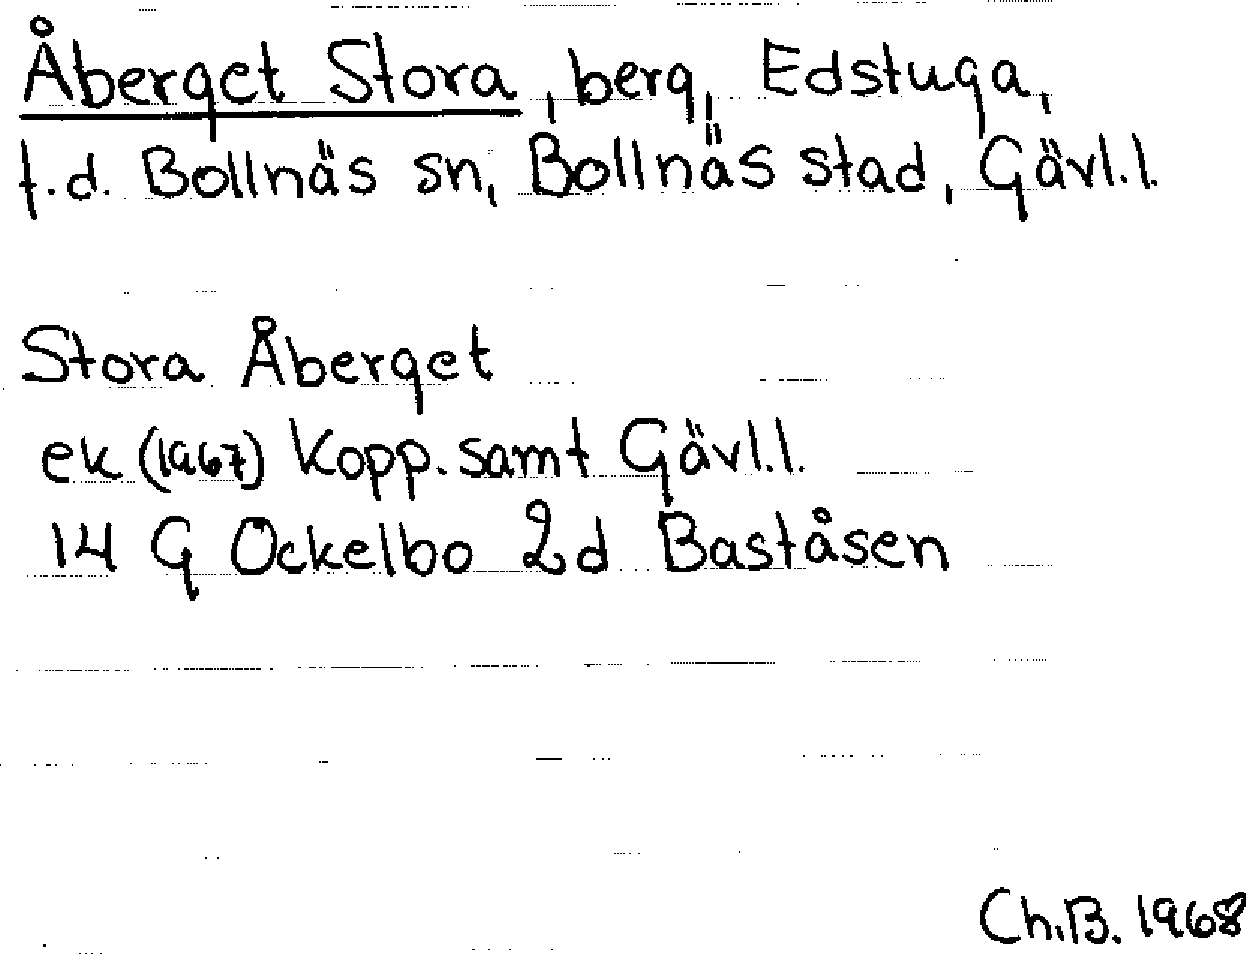 Åberget Stora, berg, Edstuga,
f.d. Bollnäs sn, Bollnäs stad, Gävl.l.
Stora Åberget
ek (1967) Kopp. samt Gävl.l.
14 G Ockelbo 2d Baståsen
Ch.B. 1968